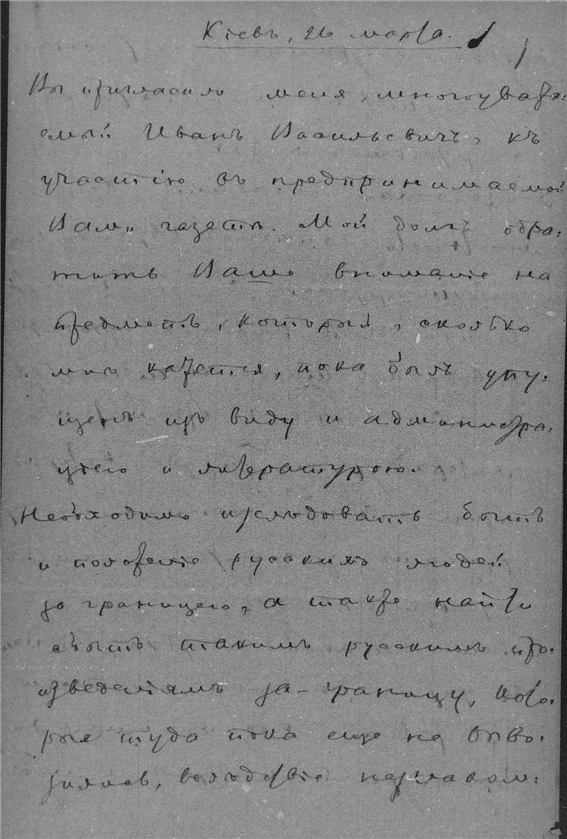 Кіевъ, 26 марта.
Вы пригласили меня, многоуважа-
емый Иванъ Васильевичъ, къ
участію въ предпринимаемой
Вами газетѣ. Мой долгъ обра-
тить Ваше вниманіе на
предметъ, который, сколько
мнѣ кажется, пока былъ упу-
щенъ изъ виду и администра-
ціею и литературою.
Необходимо изслѣдовать бытъ
и положеніе русскихъ людей
за границею, а также найти
сбытъ такимъ русскимъ про-
изведеніямъ за-границу, кото-
рыя туда пока еще не выво-
зились, вслѣдствіе незнаком-